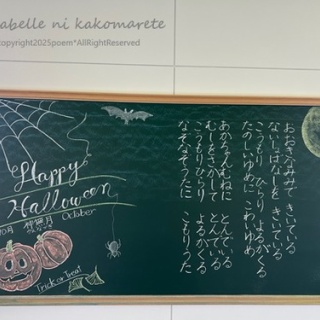 abelle ni kakomarete
opyright2025poem*AllRightReserved
Happy
Halloween
10月 神無月 October
Trick or Treat
おおきなみみで きいている
ないしょばなしを きいている
こうもり ひらり よるがくる
たのしいゆめに こわいゆめ
あかちゃんむねに とんでいる
むしをさがして とんでいる
こうもりひらり よるがくる
なぞなぞうたに こもりうた